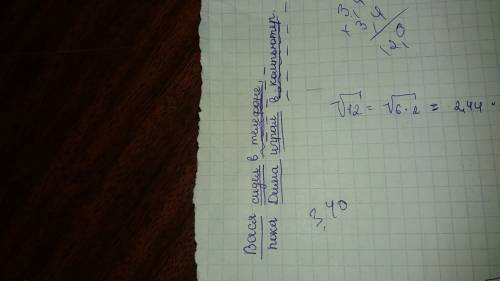 Вася сидел в телефоне,
пока Дима играл в компьютер.
3,4
× 3,4
12,0
√12 = √6·2 = 2,44 ·
3,40